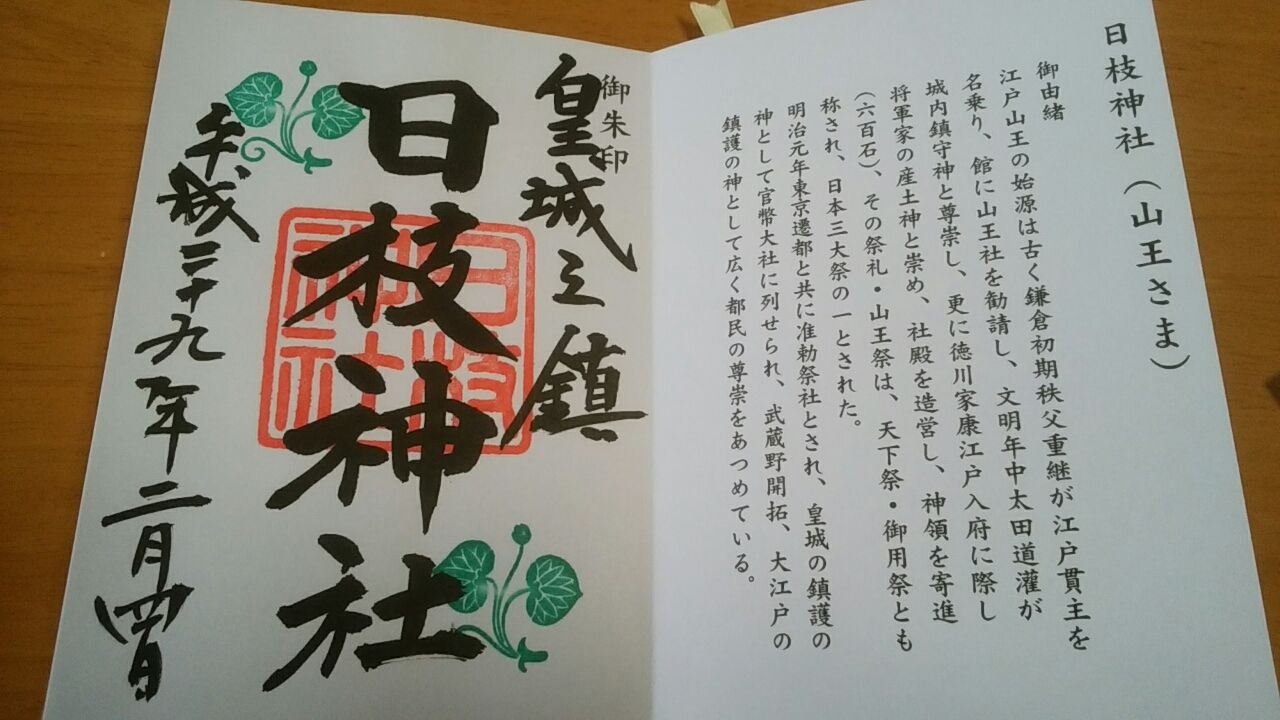 日枝神社（山王さま）
御由緒
江戸山王の始源は古く鎌倉初期秩父重継が江戸貫主を
名乗り、館に山王社を勧請し、文明年中太田道灌が
城内鎮守神と尊崇し、更に徳川家康江戸入府に際し
将軍家の産土神と崇め、社殿を造営し、神領を寄進
（六百石）、その祭礼・山王祭は、天下祭・御用祭とも
称され、日本三大祭の一とされた。
明治元年東京遷都と共に准勅祭社とされ、皇城の鎮護の
神として官幣大社に列せられ、武蔵野開拓、大江戸の
鎮護の神として広く都民の尊崇をあつめている。
御朱印
皇城之鎮
日枝神社
日枝
神社
平成二十九年二月四日